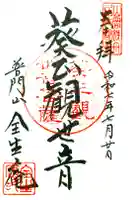 奉拝
令和七年七月廿日
葵正観世音
普門山
全生庵